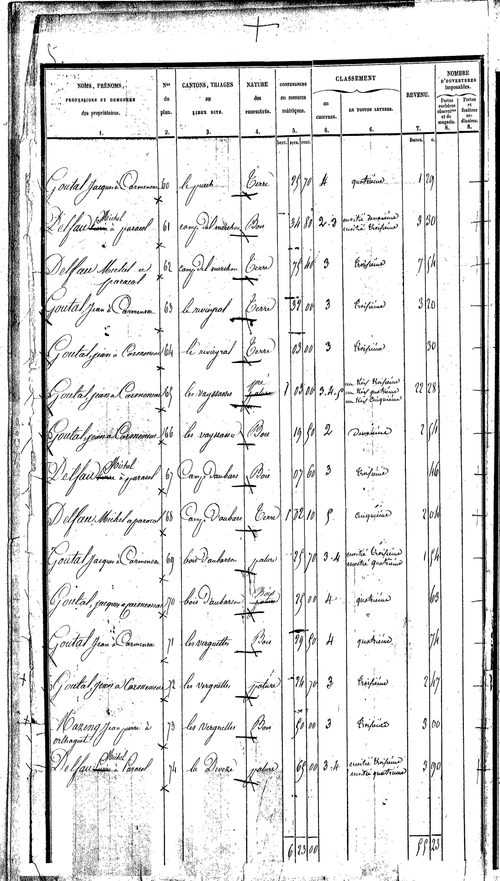 5
NOMS, PRÉNOMS,
PROFESSIONS ET DEMEURES
des propriétaires.
Nos
du
plan.
CANTONS, TRIAGES
ou
LIEUX DITS.
NATURE
des
PROPRIÉTÉS.
CONTENANCES
en mesures
métriques.
CLASSEMENT
en
CHIFFRES.
EN TOUTES LETTRES.
REVENU.
NOMBRE
D'OUVERTURES
imposables.
Portes
cochères
charretières
et de
magasin.
Portes
et
fenêtres
ordinaires.
1. 2. 3. 4. 5. 6. 6. 7. 8. 8.
hect. ares. cent. francs. c.
Goutal Jacques à Carmensa 60 le puech Terre 25 70 4 quatrième 1 29
Delfau Michel à paracol 61 camp del merchou Bois 34 80 2-3 moitié deuxième moitié troisième 3 30
Delfau Michel à paracol 62 camp del merchou Terre 75 40 3 troisième 7 54
Goutal Jean à Carmensa 63 le rivieyral Terre 32 00 3 troisième 3 20
Goutal, Jean à Carmensa 164 le rivieyral Terre 03 00 3 troisième 30
Goutal, Jean à Carmensa 165 les vayssades pature 1 03 00 3.4.5 un tiers troisième un tiers quatrième un tiers cinquième 22 28
Goutal, Jean à Carmensa 166 les vayssades Bois 19 50 2 deuxième 2 54
Delfau Michel à paracol 67 Camp Daubars Bois 07 60 3 troisième 46
Delfau, Michel à paracol 68 Camp Daubars Terre 1 02 10 5 cinquième 2 04
Goutal Jacques à Carmensa 69 bois Daubarson pature 25 70 3-4 moitié troisième moitié quatrième 1 54
Goutal, Jacques à Carmensa 70 bois Daubarson Bois 25 00 4 quatrième 63
Goutal Jean à Carmensa 71 les vergnettes Bois 29 50 4 quatrième 74
Goutal, Jean à Carmensa 72 les vergnettes pature 24 70 3 troisième 2 47
Mazeng Jean pierre à 73 les vergnettes Bois 50 00 3 troisième 3 00
orthaguet
Delfau Michel à Paracol 74 la Deveze pature 65 00 3-4 moitié troisième moitié quatrième 3 90
6 23 00 55 23